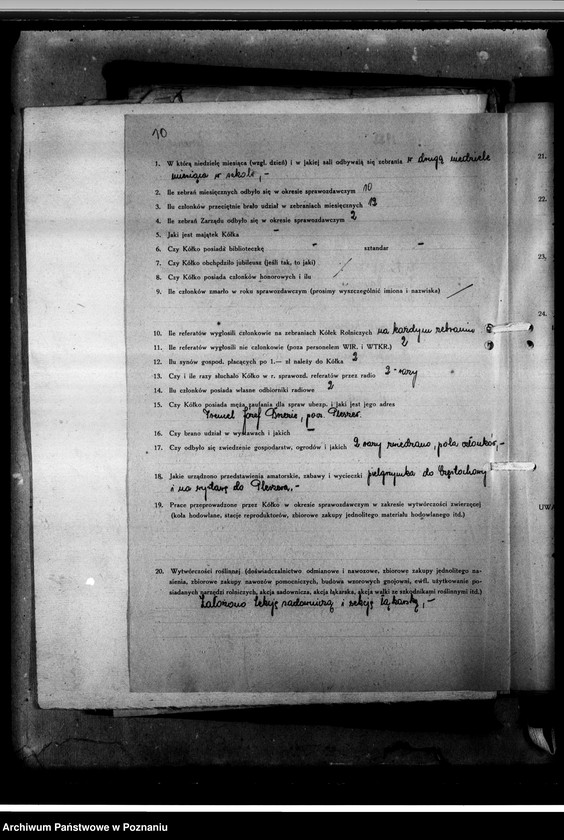 10
1. W którą niedzielę miesiąca (wzgl. dzień) i w jakiej sali odbywają się zebrania w drugą niedzielę
miesiąca w szkole,-
2. Ile zebrań miesięcznych odbyło się w okresie sprawozdawczym 10
3. Ilu członków przeciętnie brało udział w zebraniach miesięcznych 12
4. Ile zebrań Zarządu odbyło się w okresie sprawozdawczym 2
5. Jaki jest majątek Kółka -
6. Czy Kółko posiada biblioteczkę - sztandar -
7. Czy Kółko obchodziło jubileusz (jeśli tak, to jaki)
8. Czy Kółko posiada członków honorowych i ilu
9. Ile członków zmarło w roku sprawozdawczym (prosimy wyszczególnić imiona i nazwiska)
10. Ile referatów wygłosili członkowie na zebraniach Kółek Rolniczych na każdym zebraniu
11. Ile referatów wygłosili nie członkowie (poza personelem WIR. i WTKR.) 2
12. Ilu synów gospod. płacących po 1.— zł należy do Kółka 3
13. Czy i ile razy słuchało Kółko w r. sprawozd. referatów przez radio 3-razy
14. Ilu członków posiada własne odbiorniki radiowe 2
15. Czy Kółko posiada męża zaufania dla spraw ubezp. i jaki jest jego adres
Józef pow. Pleszew
16. Czy brano udział w wystawach i jakich -
17. Czy odbyło się zwiedzenie gospodarstw, ogrodów i jakich 2 razy zwiedzano, pola członków,-
18. Jakie urządzono przedstawienia amatorskie, zabawy i wycieczki pielgrzymka do Częstochowy
i na wystawę do Pleszewa,-
19. Prace przeprowadzone przez Kółko w okresie sprawozdawczym w zakresie wytwórczości zwierzęcej
(koła hodowlane, stacje reproduktorów, zbiorowe zakupy jednolitego materiału hodowlanego itd.)
20. Wytwórczości roślinnej (doświadczalnictwo odmianowe i nawozowe, zbiorowe zakupy jednolitego na-
sienia, zbiorowe zakupy nawozów pomocniczych, budowa wzorowych gnojowni, ewtl. użytkowanie po-
siadanych narzędzi rolniczych, akcja sadownicza, akcja łąkarska, akcja walki ze szkodnikami roślinnymi itd.)
Założono sekcję sadowniczą i sekcję łąkarską,-
21.
22.
23.
24.
UWA
Archiwum Państwowe w Poznaniu